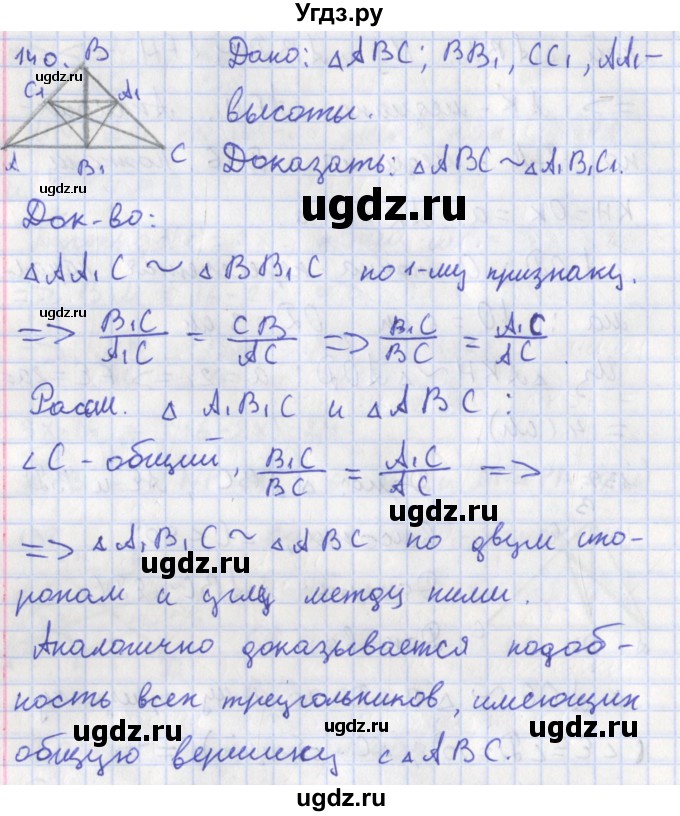 Угдз.ру
140.
B
C₁
A₁
A
B₁
C
Дано: △ABC; BB₁, CC₁, AA₁ –
высоты.
Доказать: △ABC ~ △A₁B₁C₁.
Док-во:
△AA₁C ~ △BB₁C по 1-му признаку.
=> B₁C/A₁C = CB/AC => B₁C/BC = A₁C/AC.
Рассм. △A₁B₁C и △ABC:
∠C - общий, B₁C/BC = A₁C/AC =>
=> △A₁B₁C ~ △ABC по двум сто-
ронам и углу между ними.
Аналогично доказывается подоб-
ность всех треугольников, имеющих
общую вершину с △ABC.
ugdz.ru
ugdz.ru
ugdz.ru
ugdz.ru
ugdz.ru
ugdz.ru
ugdz.ru
ugdz.ru
ugdz.ru
ugdz.ru
ugdz.ru